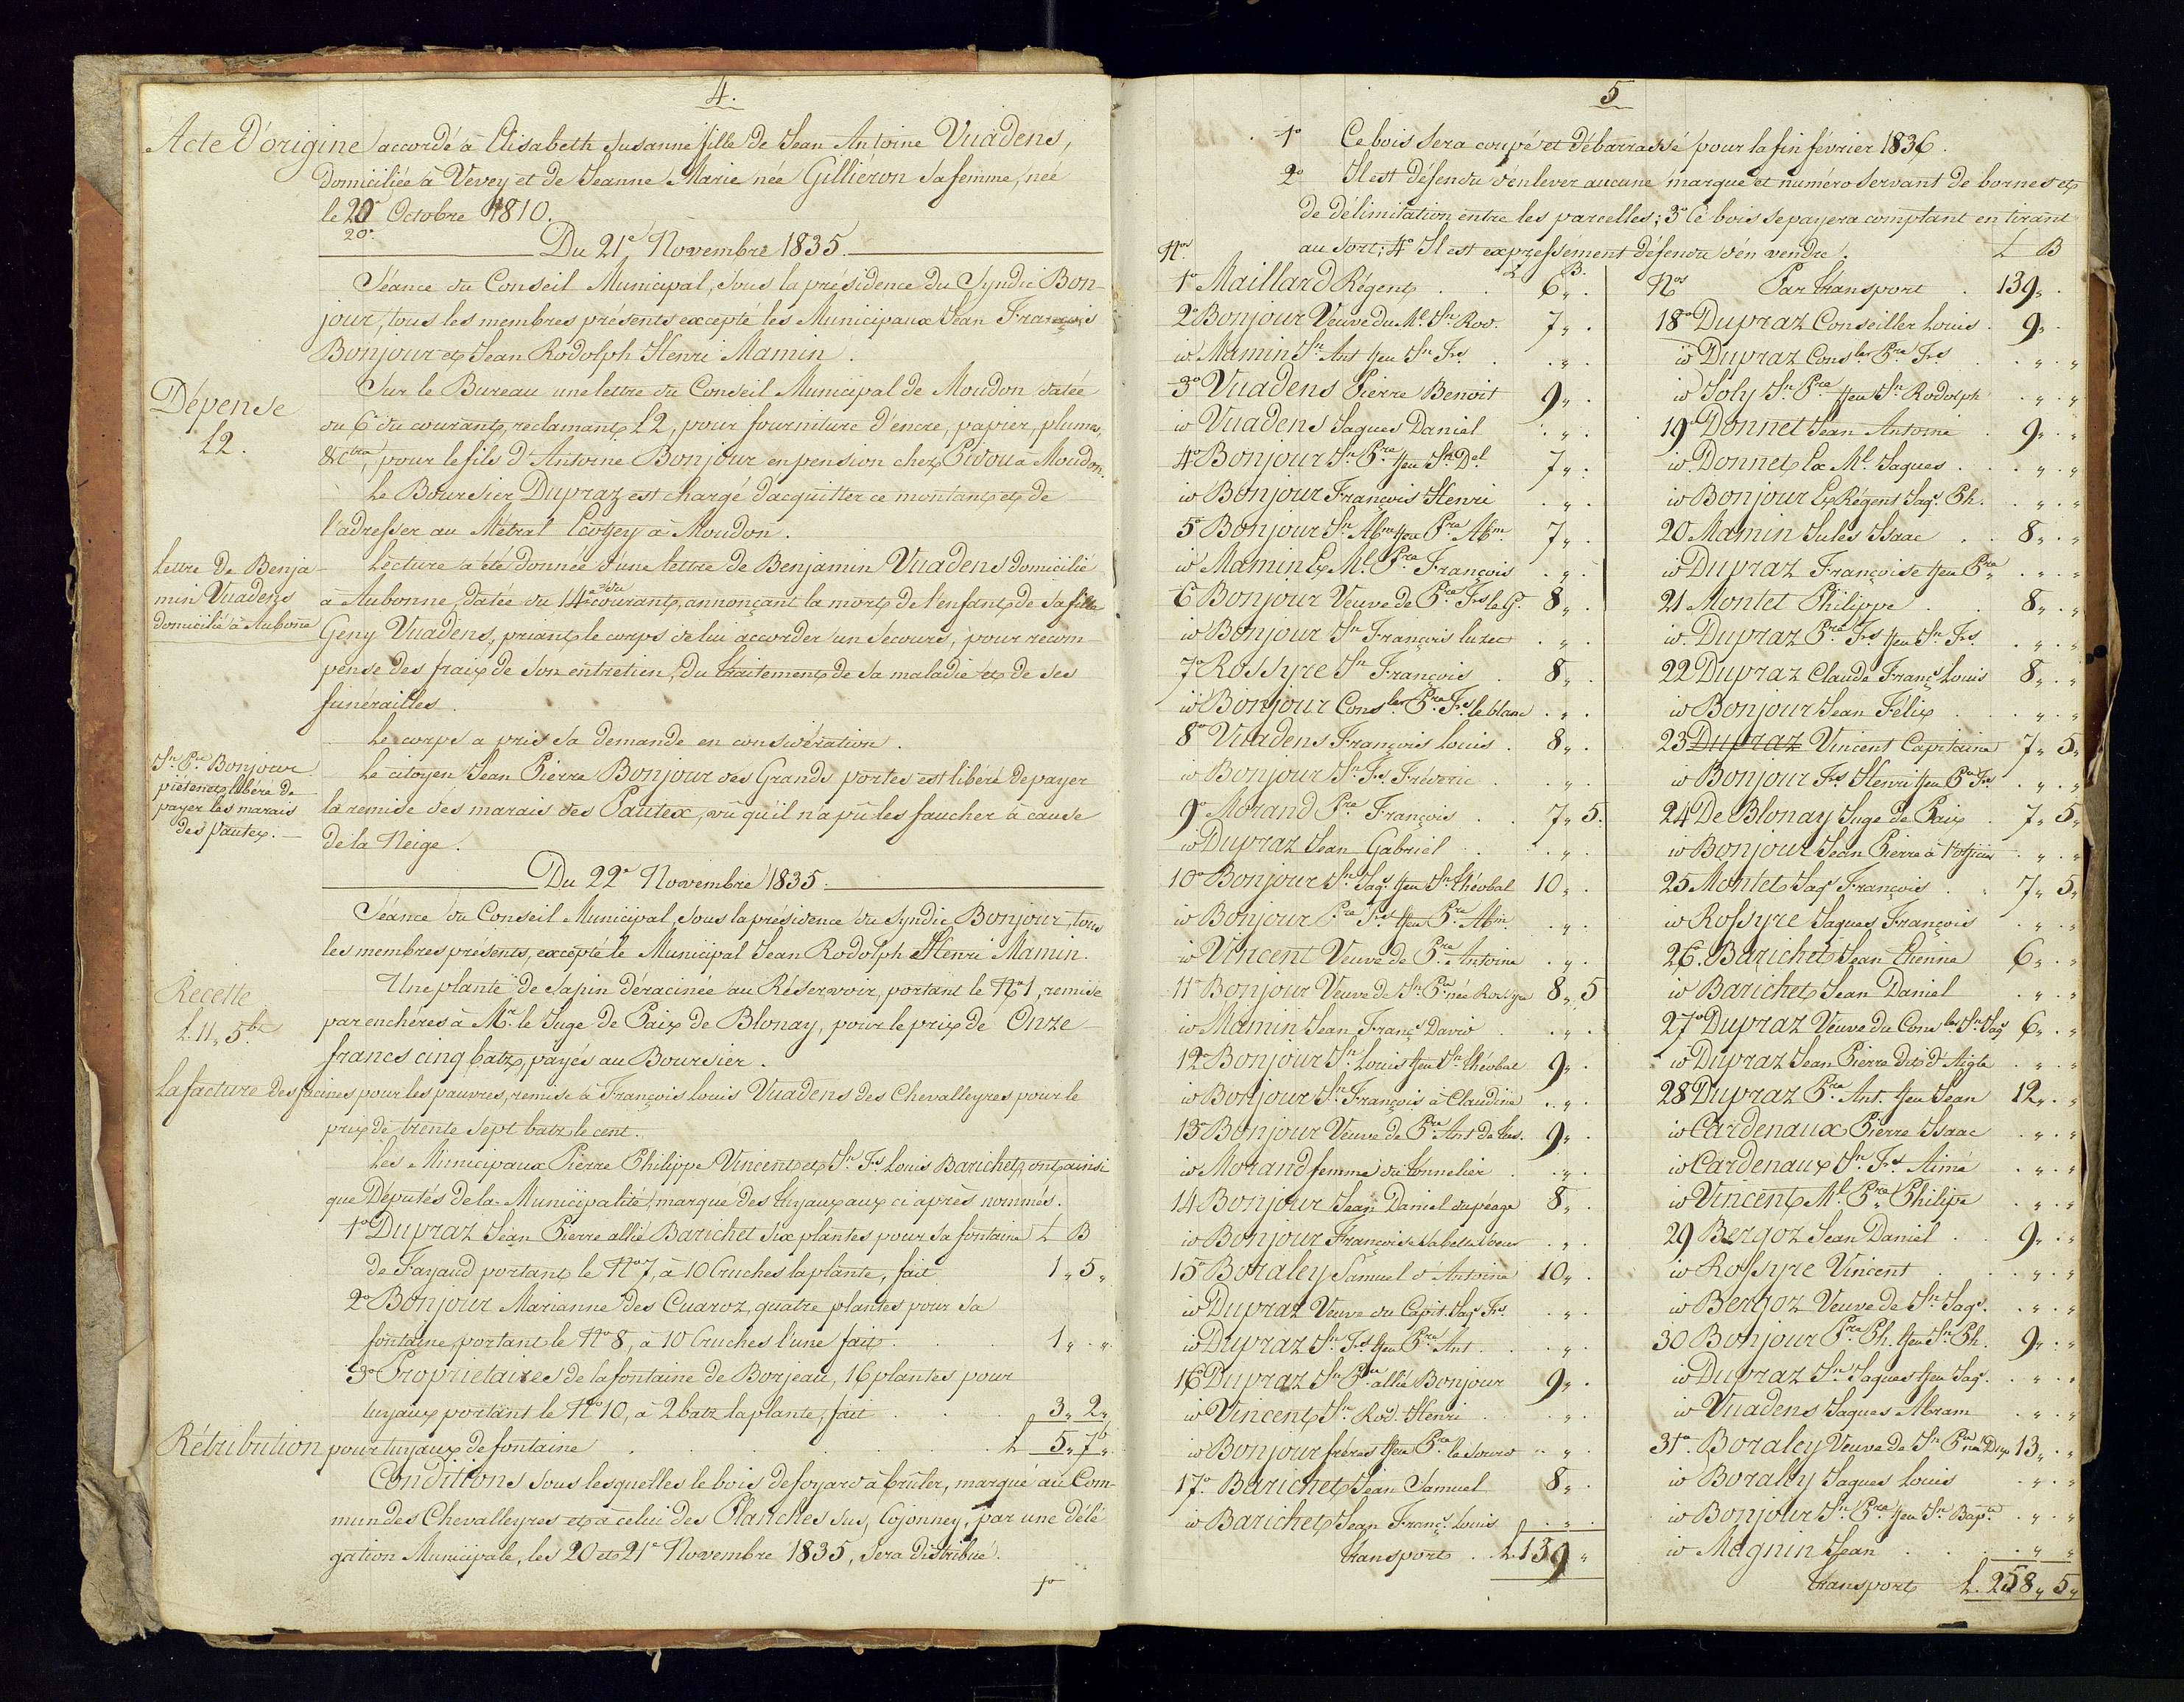 4.
Acte D'origine accordé à Elisabeth Susanne fille de Jean Antoine Vuadens,
domiciliée à Vevey et de Jeanne Marie née Gilliéron sa femme, née
le 20e Octobre 1810.
20.
Du 21e Novembre 1835.
Séance du Conseil Municipal, sous la présidence du Syndic Bon-
jour, tous les membres présents excepté les Municipaux Jean François
Bonjour et Jean Rodolph Henri Mamin.
Dépense
L2.
Sur le Bureau une lettre du Conseil Municipal de Moudon datée
du 6 du courant, réclamant L2, pour fourniture d'encre, papier, plumes,
&ctra, pour le fils d'Antoine Bonjour en pension chez Pidou à Moudon.
Le Boursier Dupraz est chargé d'acquitter ce montant et de
l'adresser au Métral à Moudon.
Lettre de Benja-
min Vuadens
domicilié à Aubone
Lecture a été donnée d'une lettre de Benjamin Vuadens domicilié
à Aubonne, datée du 14e du courant, annonçant la mort de l'enfant de sa fille
Geny Vuadens, priant le corps de lui accorder un secours, pour recom-
pense des fraix de son entretien, du traitement de sa maladie et de ses
funérailles.
Le corps a pris sa demande en considération.
Jn Pre Bonjour
libéré de
payer les marais
des Pautex.
Le citoyen Jean Pierre Bonjour des Grands portes est libéré de payer
la remise des marais des Pautex, vû qu'il n'a pû les faucher à cause
de la Neige.
Du 22e Novembre 1835.
Séance du Conseil Municipal, sous la présidence du Syndic Bonjour, tous
les membres présents, excepté le Municipal Jean Rodolph Henri Mamin.
Recette
L. 11,, 5bz
Une plante de sapin déracinée au Réservoir, portant le No 1, remise
par enchères à Mr. le Juge de Paix de Blonay, pour le prix de Onze
francs cinq batz, payés au Boursier.
La facture des facines pour les pauvres, remise à François Louis Vuadens des Chevalleyres pour le
prix de trente sept batz le cent.
Les Municipaux Pierre Philippe Vincent et Jn Fs Louis Barichet, ont ainsi
que Députés de la Municipalité, marqué des tuyaux aux ci après nommés.
1o Dupraz Jean Pierre allié Barichet six plantes pour sa fontaine L B
de Fayaud portant le No 7, à 10 Cruches la plante, fait 1,, 5,,
2o Bonjour Marianne des Cuaroz, quatre plantes pour sa
fontaine, portant le No 8, à 10 Cruches l'une fait . 1,, . ,,
3o Proprietaires de la fontaine de Borjeau, 16 plantes pour
tuyaux portant le No 10, à 2 batz la plante, fait . . . 3,, 2,,
Rétribution pour tuyaux de fontaine . . . . . L 5,, 7,,
Conditions sous lesquelles le bois de foyard à brûler, marqué au Com-
mun des Chevalleyres et à celui des Planches sus, Cojonney, par une délé-
gation Municipale, les 20 et 21e Novembre 1835, sera distribué.
1o
5
1o Ce bois sera coupé et débarrassé pour la fin février 1836.
2o Il est défendu d'enlever aucune marque et numéro servant de bornes et
de délimitation entre les parcelles; 3o Ce bois se payera comptant en tirant
au sort; 4o Il est expressément défendu d'en vendre.
Nos L B.
1o Maillard Régent . . 6,, .
2o Bonjour Veuve du Ml Jn Rod. 7,, .
id Mamin Jn Ant feu Jn Frs . ,, .
3o Vuadens Pierre Benoit 9,, .
id Vuadens Jaques Daniel . ,, .
4o Bonjour Jn Pre feu Jn Del 7,, .
id Bonjour François Henri . ,, .
5o Bonjour Jn Abm feu Pre Abm 7,, .
id Mamin Ex Ml Pre François . ,, .
6 Bonjour Veuve de Pre Frs le G. 8,, .
id Bonjour Jn François . ,, .
7o Rossyre Jn François . 8,, .
id Bonjour Consler Pre Frs le blanc . ,, .
8o Vuadens François Louis . 8,, .
id Bonjour Jn Frs Fréderic . ,, .
9o Morand Pre François . . 7,, 5.
id Dupraz Jean Gabriel . . ,, .
10o Bonjour Jn Jaqs feu Jn Théobal 10,, .
id Bonjour Pre Frs feu Pre Abm . ,, .
id Vincent Veuve de Pre Antoine . ,, .
11o Bonjour Veuve de Jn Pre née Rossyre 8,, 5
id Mamin Jean Franç David . . ,, .
12o Bonjour Jn Louis feu Jn Théobal 9,, .
id Bonjour Jn François à Claudine . ,, .
13o Bonjour Veuve de Pre Ant 9,, .
id Morand femme du tonnelier . . ,, .
14 Bonjour Jean Daniel du péage 8,, .
id Bonjour Françoise Isabelle . ,, .
15o Boraley Samuel d'Antoine 10,, .
id Dupraz Veuve du Capit. Jaqs Frs . ,, .
id Dupraz Jn Frs feu Pre Ant . . ,, .
16 Dupraz Jn Pre allié Bonjour 9,, .
id Vincent Jn Rod. Henri . . ,, .
id Bonjour frères feu Pre le sourd ,, ,, .
17o Barichet Jean Samuel 8,, .
id Barichet Jean Franç. Louis . ,, .
transport . L. 139 ,,
L B
Nos Par transport . 139,, .
18o Dupraz Conseiller Louis . 9,, .
id Dupraz Consler Pre Frs . . ,, . ,,
id Joly Jn Pre feu Jn Rodolph . ,, . ,,
19o Donnet Jean Antoine . 9,, . ,,
id. Donnet Ex Ml Jaques . . . ,, . ,,
id Bonjour Ex Régent Jaqs Ph. . ,, . ,,
20 Mamin Jules Isaac . . 8,, . ,,
id Dupraz Françoise feu Pre . ,, . ,,
21 Montet Philippe . . 8,, . ,,
id. Dupraz Pre Frs feu Jn Frs . ,, . ,,
22 Dupraz Claude Franç Louis 8,, . ,,
id Bonjour Jean Félix . . . ,, . ,,
23 Dupraz Vincent Capitaine 7,, 5,,
id Bonjour Frs Henri feu Pre Frs . ,, . ,,
24 De Blonay Juge de Paix . 7,, 5,,
id Bonjour Jean Pierre à l'officier . ,, . ,,
25 Montet Jaqs François . . 7,, 5,,
id Rossyre Jaques François . ,, . ,,
26. Barichet Jean Etienne 6,, . ,,
id Barichet Jean Daniel . ,, . ,,
27o Dupraz Veuve du Consler Jn Jaqs 6,, . ,,
id Dupraz Jean Pierre dit d'Aigle . ,, . ,,
28 Dupraz Pre Ant. feu Jean 12,, . ,,
id Cardenaux Pierre Isaac . ,, . ,,
id Cardenaux Jn Frs Aimé . ,, . ,,
id Vincent Ml Pre Philipe . ,, . ,,
29 Bergoz Jean Daniel . . 9,, . ,,
id Rossyre Vincent . . ,, . ,,
id Bergoz Veuve de Jn Jaqs. . ,, . ,,
30 Bonjour Pre Ph. feu Jn Ph. 9,, . ,,
id Dupraz Jn Jaques feu Jaqs. . ,, . ,,
id Vuadens Jaques Abram . ,, . ,,
31o. Boraley Veuve de Jn Pre née Dup 13,, . ,,
id Boraley Jaques Louis . ,, . ,,
id Bonjour Jn Pre feu Jn Bapte . ,, . ,,
id Magnin Jean . . . ,, . ,,
transport L. 258,, 5,,